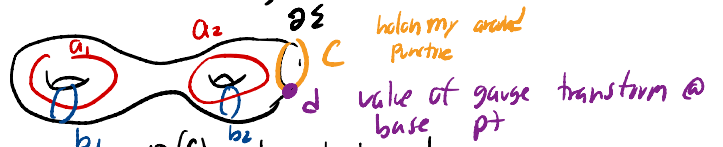 ∂Σ
a₁
a₂
C
holonomy around
puncture
d
value of gauge transform @
base pt
b₁
b₂